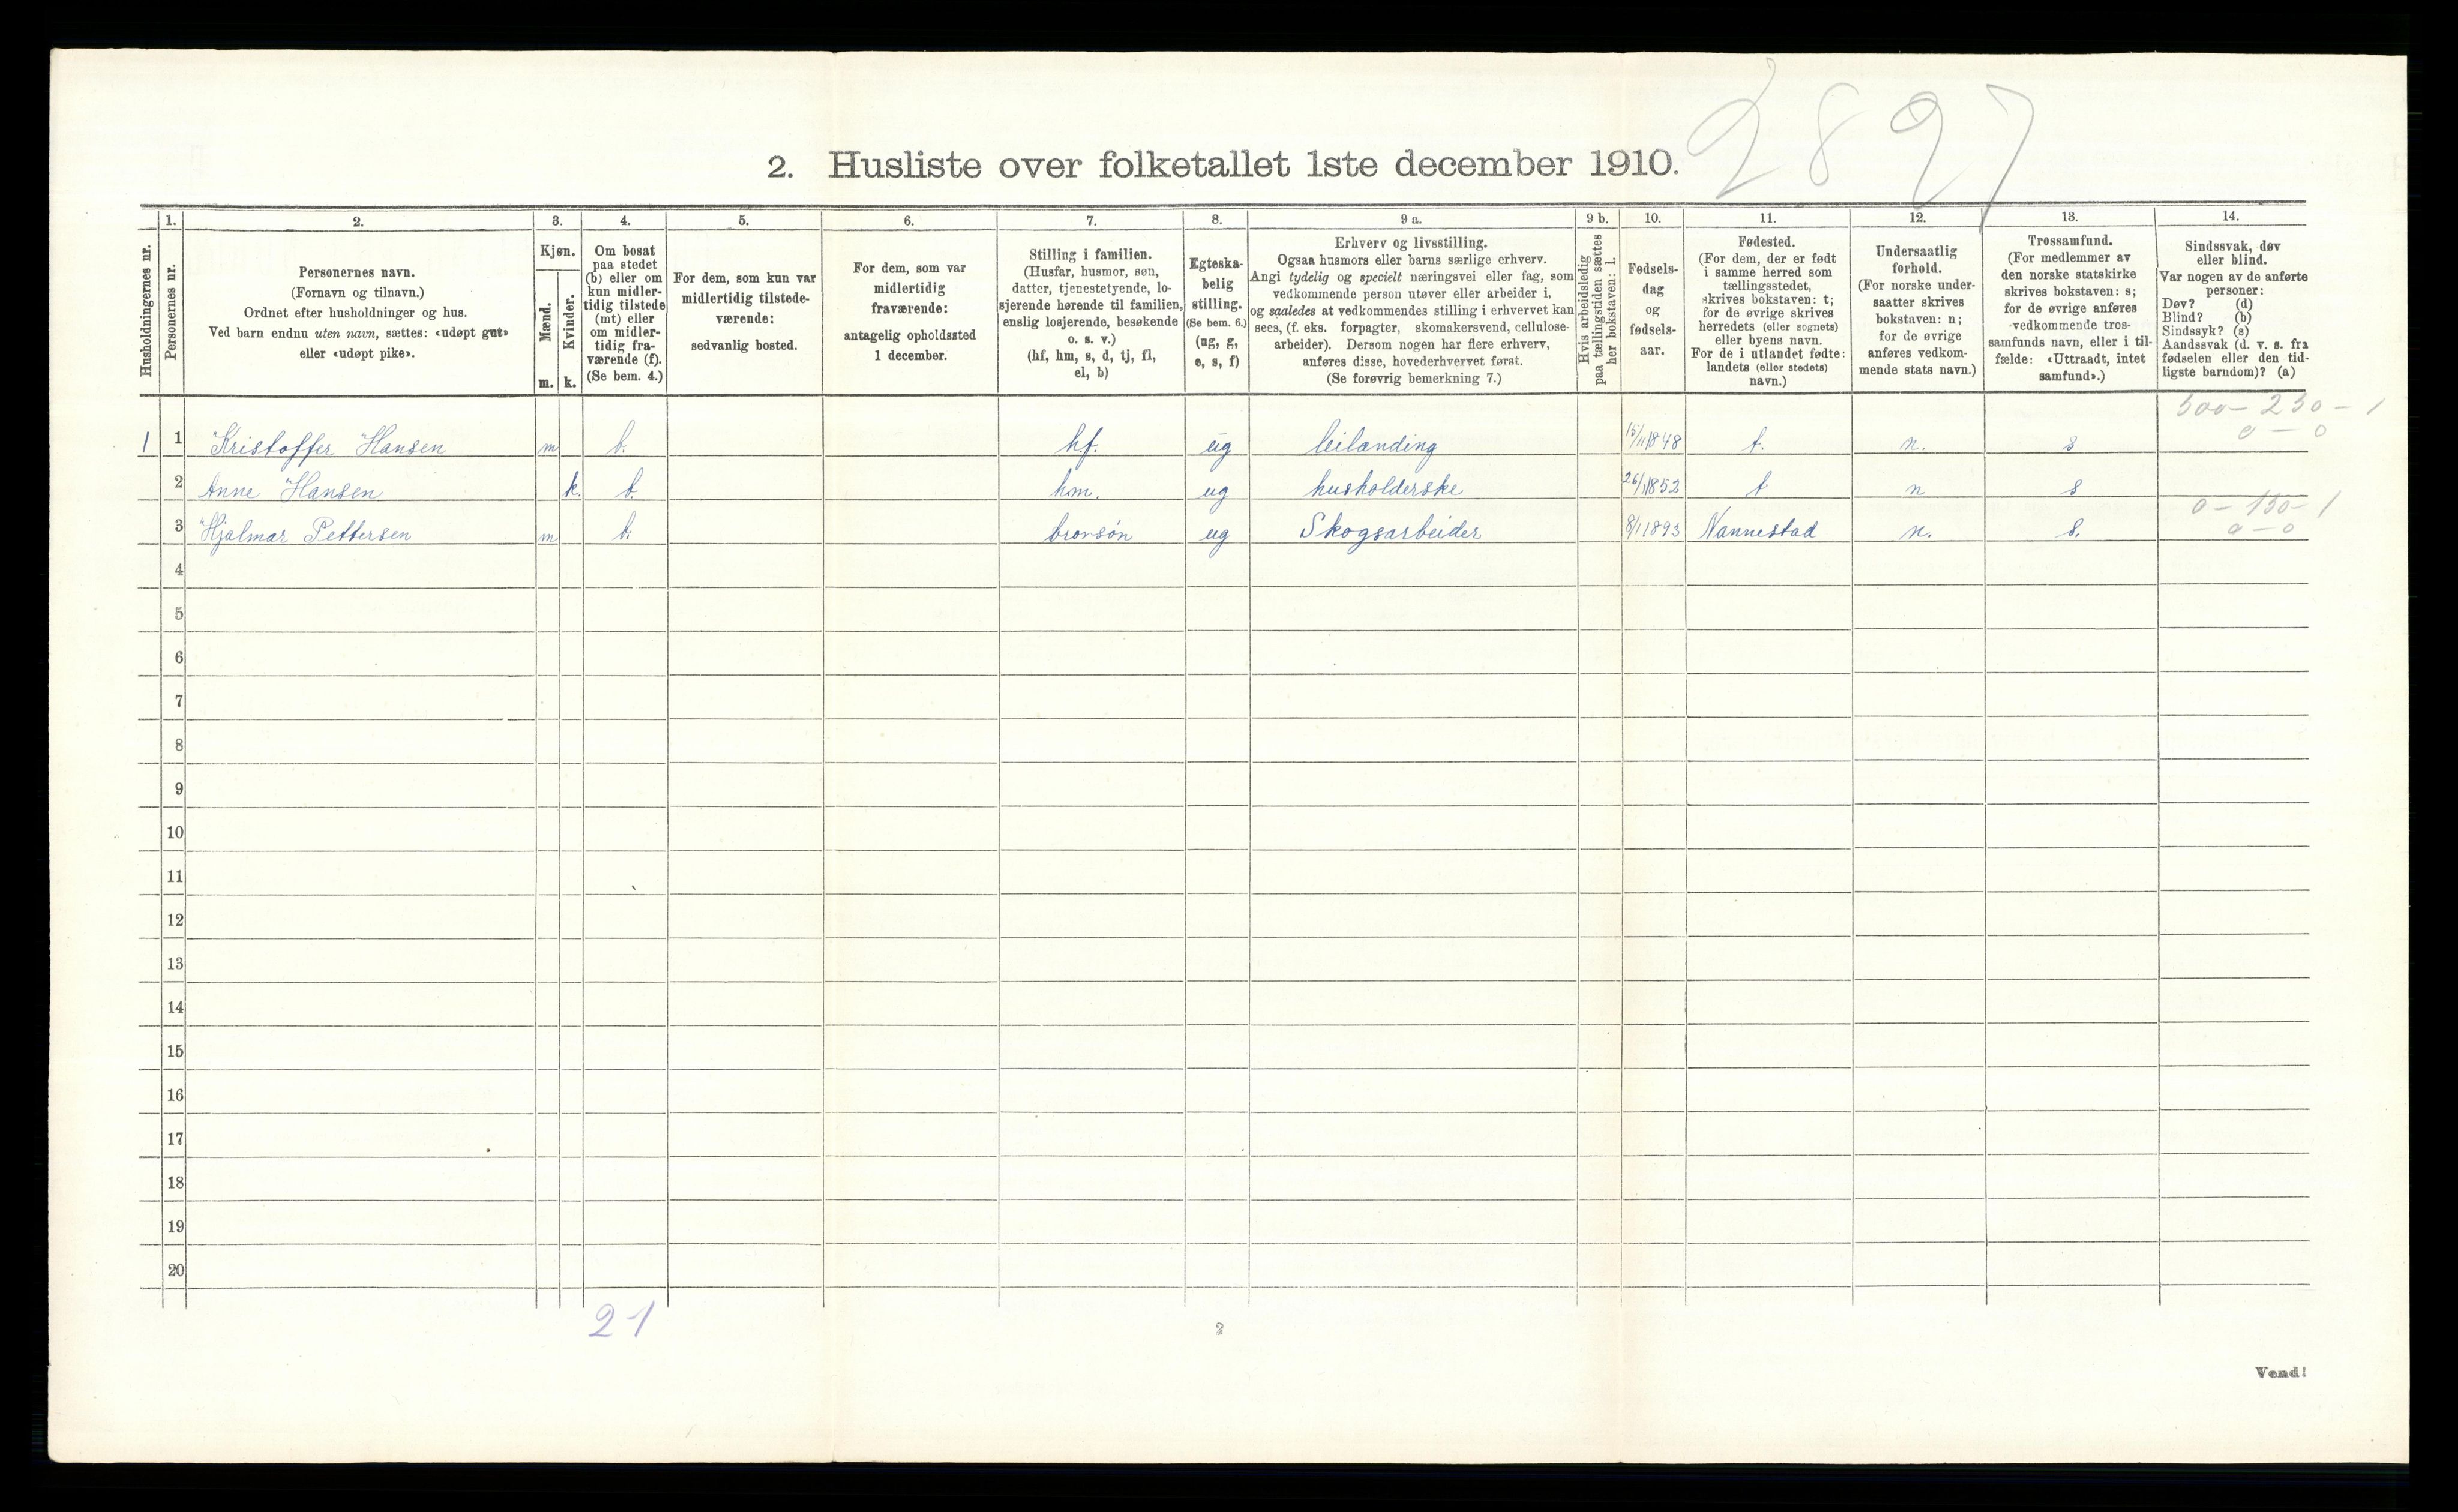 2897
2. Husliste over folketallet 1ste december 1910.
Husholdningernes nr.
1.
Personernes nr.
2.
Personernes navn.
(Fornavn og tilnavn.)
Ordnet efter husholdninger og hus.
Ved barn endnu uten navn, sættes: «udøpt gut»
eller «udøpt pike».
3.
Kjøn.
Mænd.
m.
Kvinder.
k.
4.
Om bosat
paa stedet
(b) eller om
kun midler-
tidig tilstede
(mt) eller
om midler-
tidig fra-
værende (f).
(Se bem. 4.)
5.
For dem, som kun var
midlertidig tilstede-
værende:
sedvanlig bosted.
6.
For dem, som var
midlertidig
fraværende:
antagelig opholdssted
1 december.
7.
Stilling i familien.
(Husfar, husmor, søn,
datter, tjenestetyende, lo-
sjerende hørende til familien,
enslig losjerende, besøkende
o. s. v.)
(hf, hm, s, d, tj, fl,
el, b)
8.
Egteska-
belig
stilling.
(Se bem. 6.)
(ug, g,
e, s, f)
9 a.
Erhverv og livsstilling.
Ogsaa husmors eller barns særlige erhverv.
Angi tydelig og specielt næringsvei eller fag, som
vedkommende person utøver eller arbeider i,
og saaledes at vedkommendes stilling i erhvervet kan
sees, (f. eks. forpagter, skomakersvend, cellulose-
arbeider). Dersom nogen har flere erhverv,
anføres disse, hovederhvervet først.
(Se forøvrig bemerkning 7.)
9 b.
Hvis arbeidsledig
paa tællingstiden sættes
her bokstaven: l.
10.
Fødsels-
dag
og
fødsels-
aar.
11.
Fødested.
(For dem, der er født
i samme herred som
tællingsstedet,
skrives bokstaven: t;
for de øvrige skrives
herredets (eller sognets)
eller byens navn.
For de i utlandet fødte:
landets (eller stedets)
navn.)
12.
Undersaatlig
forhold.
(For norske under-
saatter skrives
bokstaven: n;
for de øvrige
anføres vedkom-
mende stats navn.)
13.
Trossamfund.
(For medlemmer av
den norske statskirke
skrives bokstaven: s;
for de øvrige anføres
vedkommende tros-
samfunds navn, eller i til-
fælde: «Uttraadt, intet
samfund».)
14.
Sindssvak, døv
eller blind.
Var nogen av de anførte
personer:
Døv? (d)
Blind? (b)
Sindssyk? (s)
Aandssvak (d. v. s. fra
fødselen eller den tid-
ligste barndom)? (a)
500 - 230 - 1
0 - 0
1 1 Kristoffer Hansen m b. hf. ug leilanding 15/11 1848 t. n. s
2 Anne Hansen k. b. hm. ug husholderske 26/1 1852 t n s
0 - 150 - 1
0 - 0
3 Hjalmar Pettersen m b. brorsón ug Skogsarbeider 8/1 1893 Nannestad n. s.
4
5
6
7
8
9
10
11
12
13
14
15
16
17
18
19
20
21
2
Vend!